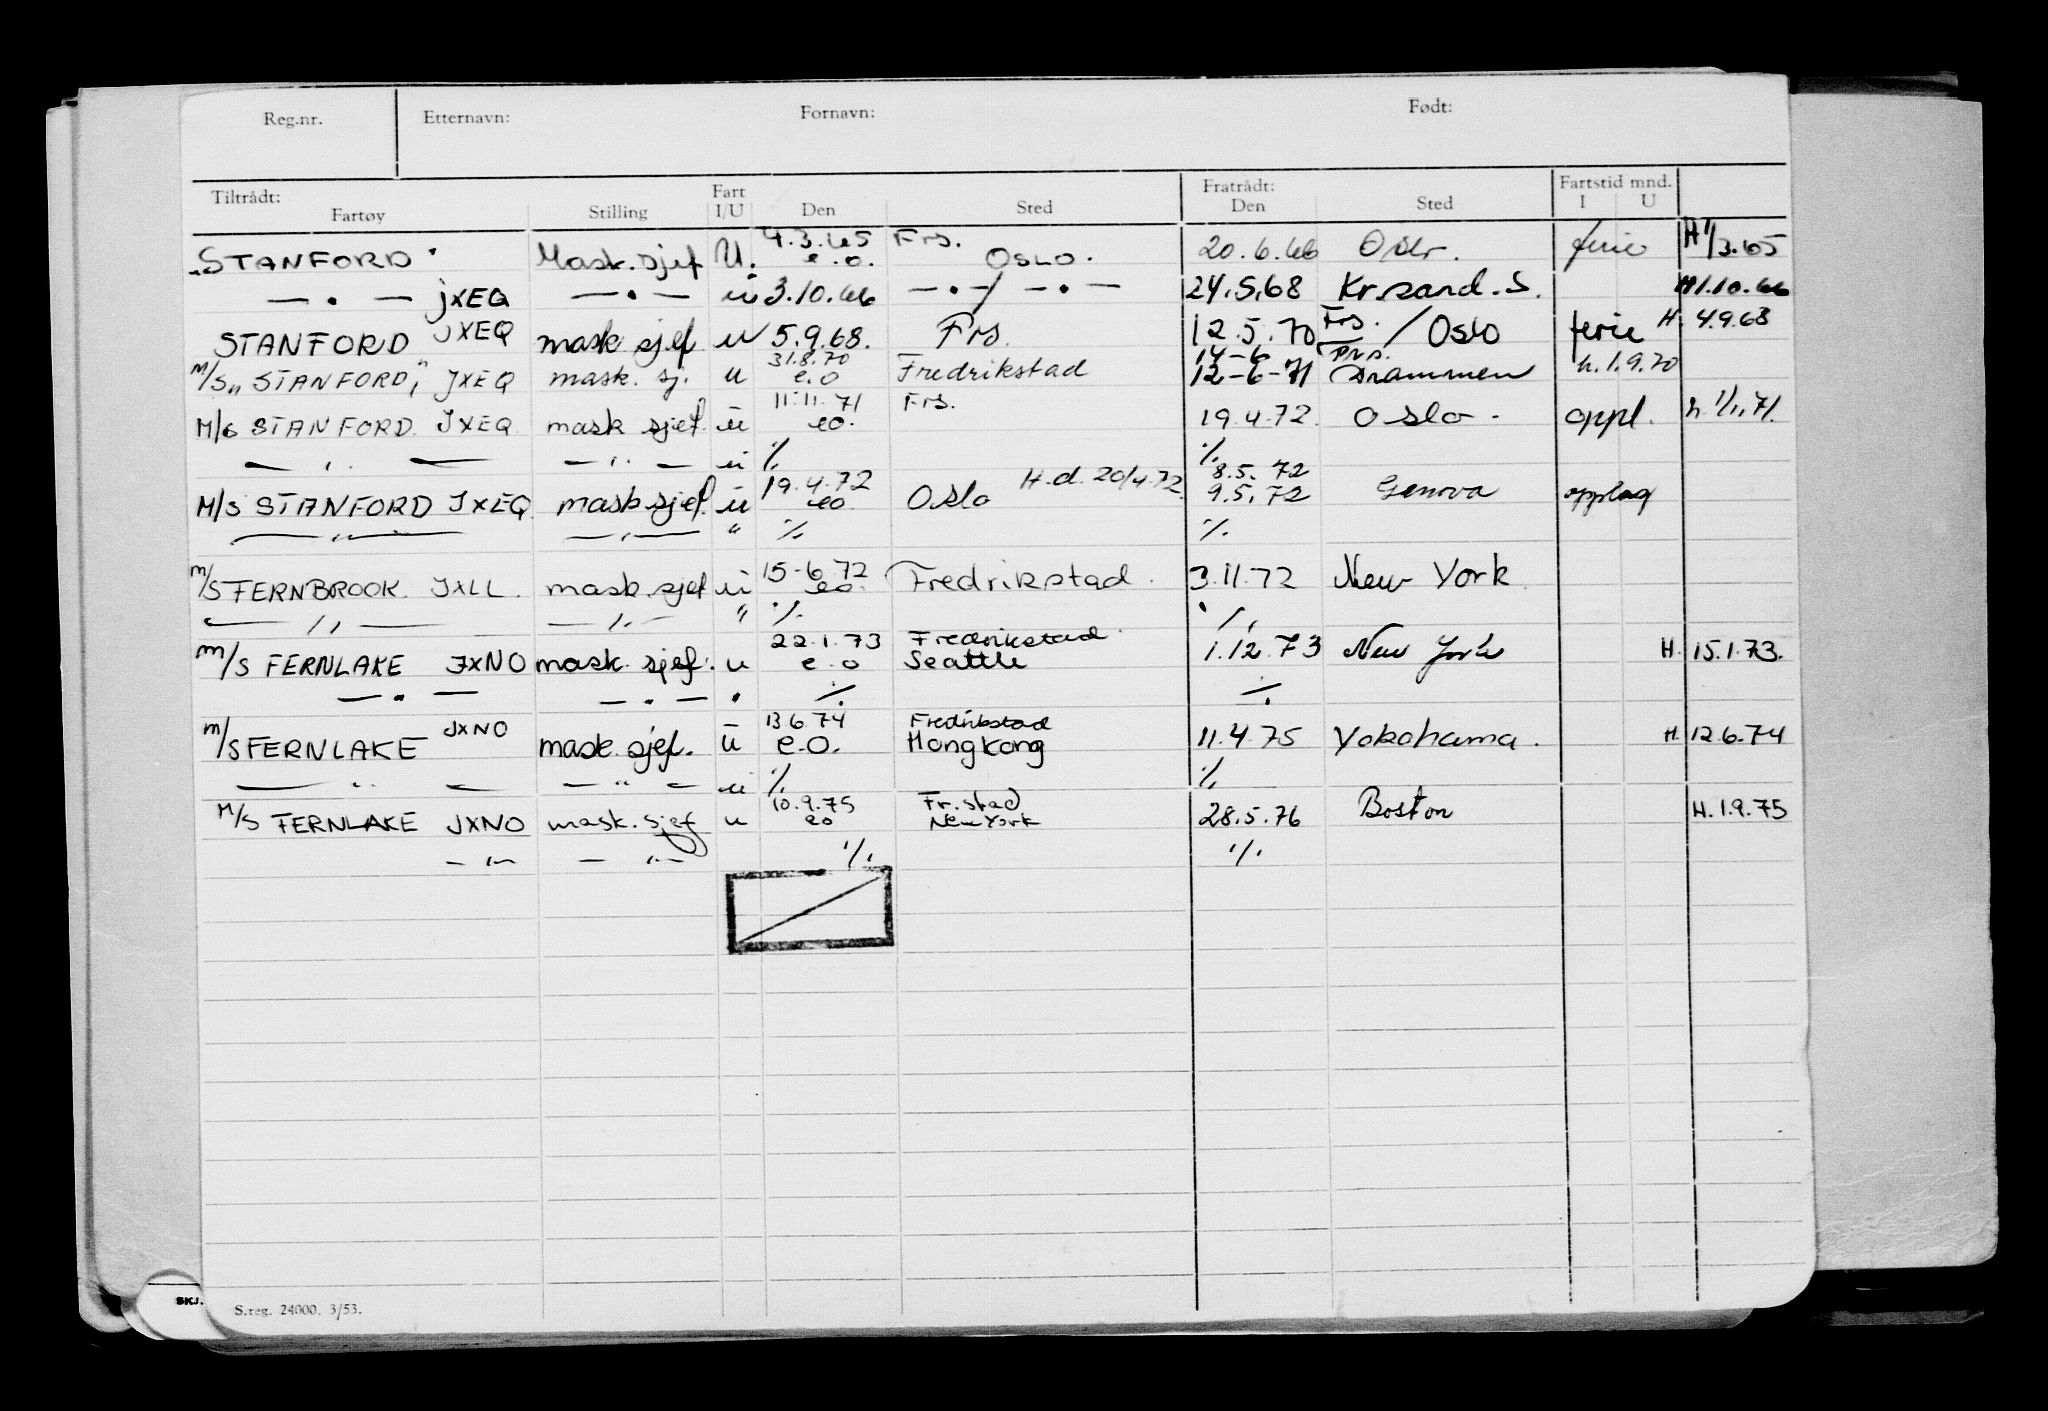 Reg.nr. Etternavn: Fornavn: Født:
Tiltrådt: Fart Fratrådt: Fartstid mnd.
Fartøy Stilling I/U Den Sted Den Sted I U
4.3.65 Frs.
"STANFORD" Mask. sjef U. e.o. OSLO. 20.6.66 Oslo. ferie H 1/3.65
— " — JXEQ — " — u 3.10.66 — " — / — " — 24.5.68 Kr.sand. S. H 1.10.66
STANFORD JXEQ mask sjef u 5.9.68. Frs. 12.5.70 Frs. / Oslo ferie H. 4.9.68
31.8.70 14-6
m/S "STANFORD", JXEQ mask. sj. u e.o Fredrikstad 12-6-71 Drammen h. 1.9.70
11.11.71 Frs.
M/S STANFORD. JXEQ mask sjef. u eo. 19.4.72. Oslo. oppl. h. 1/11.71.
— " — — " — u ./. ./.
19.4.72 H.d. 20/4.72. 8.5.72
M/S STANFORD JXEQ. mask sjef. u eo. Oslo 9.5.72 Genova opplag
— " — — " — " ./. ./.
15-6.72
m/S FERNBROOK. JXLL. mask. sjef u eo. Fredrikstad. 3.11.72 New York.
— " — — " — " ./. ./.
22.1.73 Fredrikstad.
m/S FERNLAKE JXNO mask. sjef. u e.o Seattle 1.12.73 New York H. 15.1.73.
— " — — " — " ./. ./.
13.6.74 Fredrikstad
m/S FERNLAKE JXNO mask. sjef. u e.o. Hongkong 11.4.75 Yokohama. H. 12.6.74
— " — — " — u ./. ./.
10.9.75 Fr.stad
M/S FERNLAKE JXNO mask. sjef u eo New York 28.5.76 Boston H. 1.9.75
— " — — " — ./. ./.
SKJ.
S.reg. 24000. 3/53.